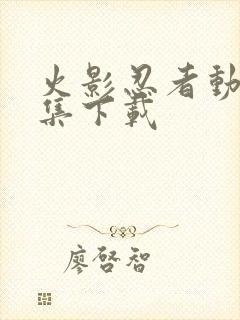 火影忍者動
集下載
廖啓智